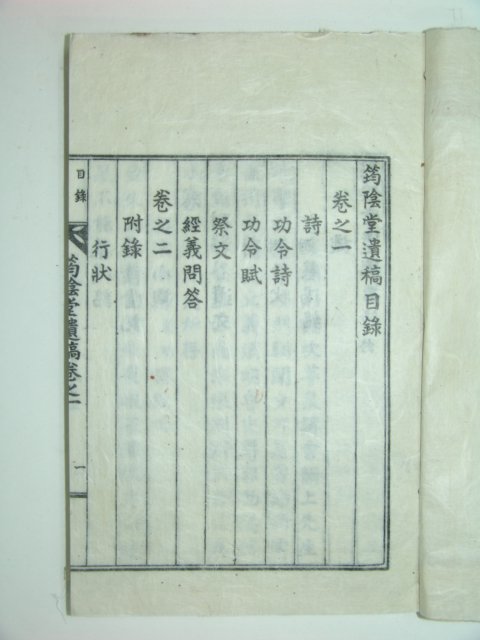 筠陰堂遺稿目錄
卷之一
詩
功令詩
功令賦
祭文
經義問答
卷之二
附錄
行狀
目錄
筠陰堂遺稿卷之一
一